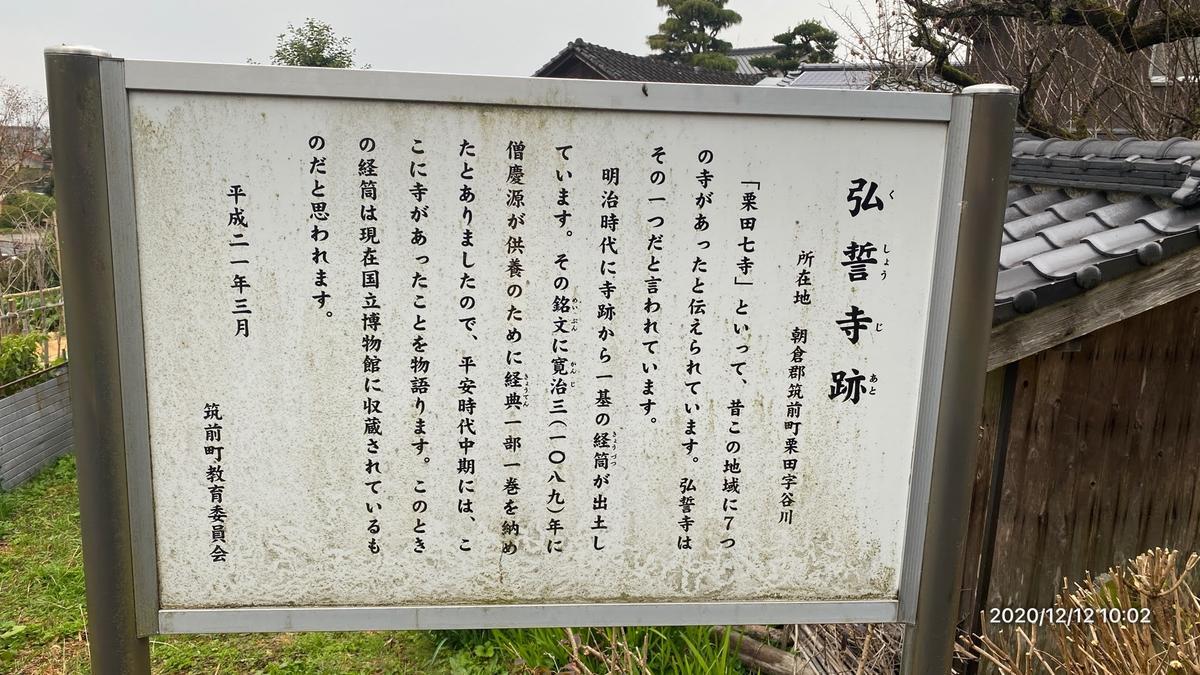 弘誓寺跡
くしょうじあと
所在地 朝倉郡筑前町栗田字谷川
「栗田七寺」といって、昔この地域に７つ
の寺があったと伝えられています。弘誓寺は
その一つだと言われています。
明治時代に寺跡から一基の経筒が出土し
きょうづつ
ています。その銘文に寛治三（一〇八九）年に
めいぶん かんじ
僧慶源が供養のために経典一部一巻を納め
きょうてん
たとありましたので、平安時代中期には、こ
こに寺があったことを物語ります。このとき
の経筒は現在国立博物館に収蔵されているも
のだと思われます。
平成二一年三月
筑前町教育委員会
2020/12/12 10:02